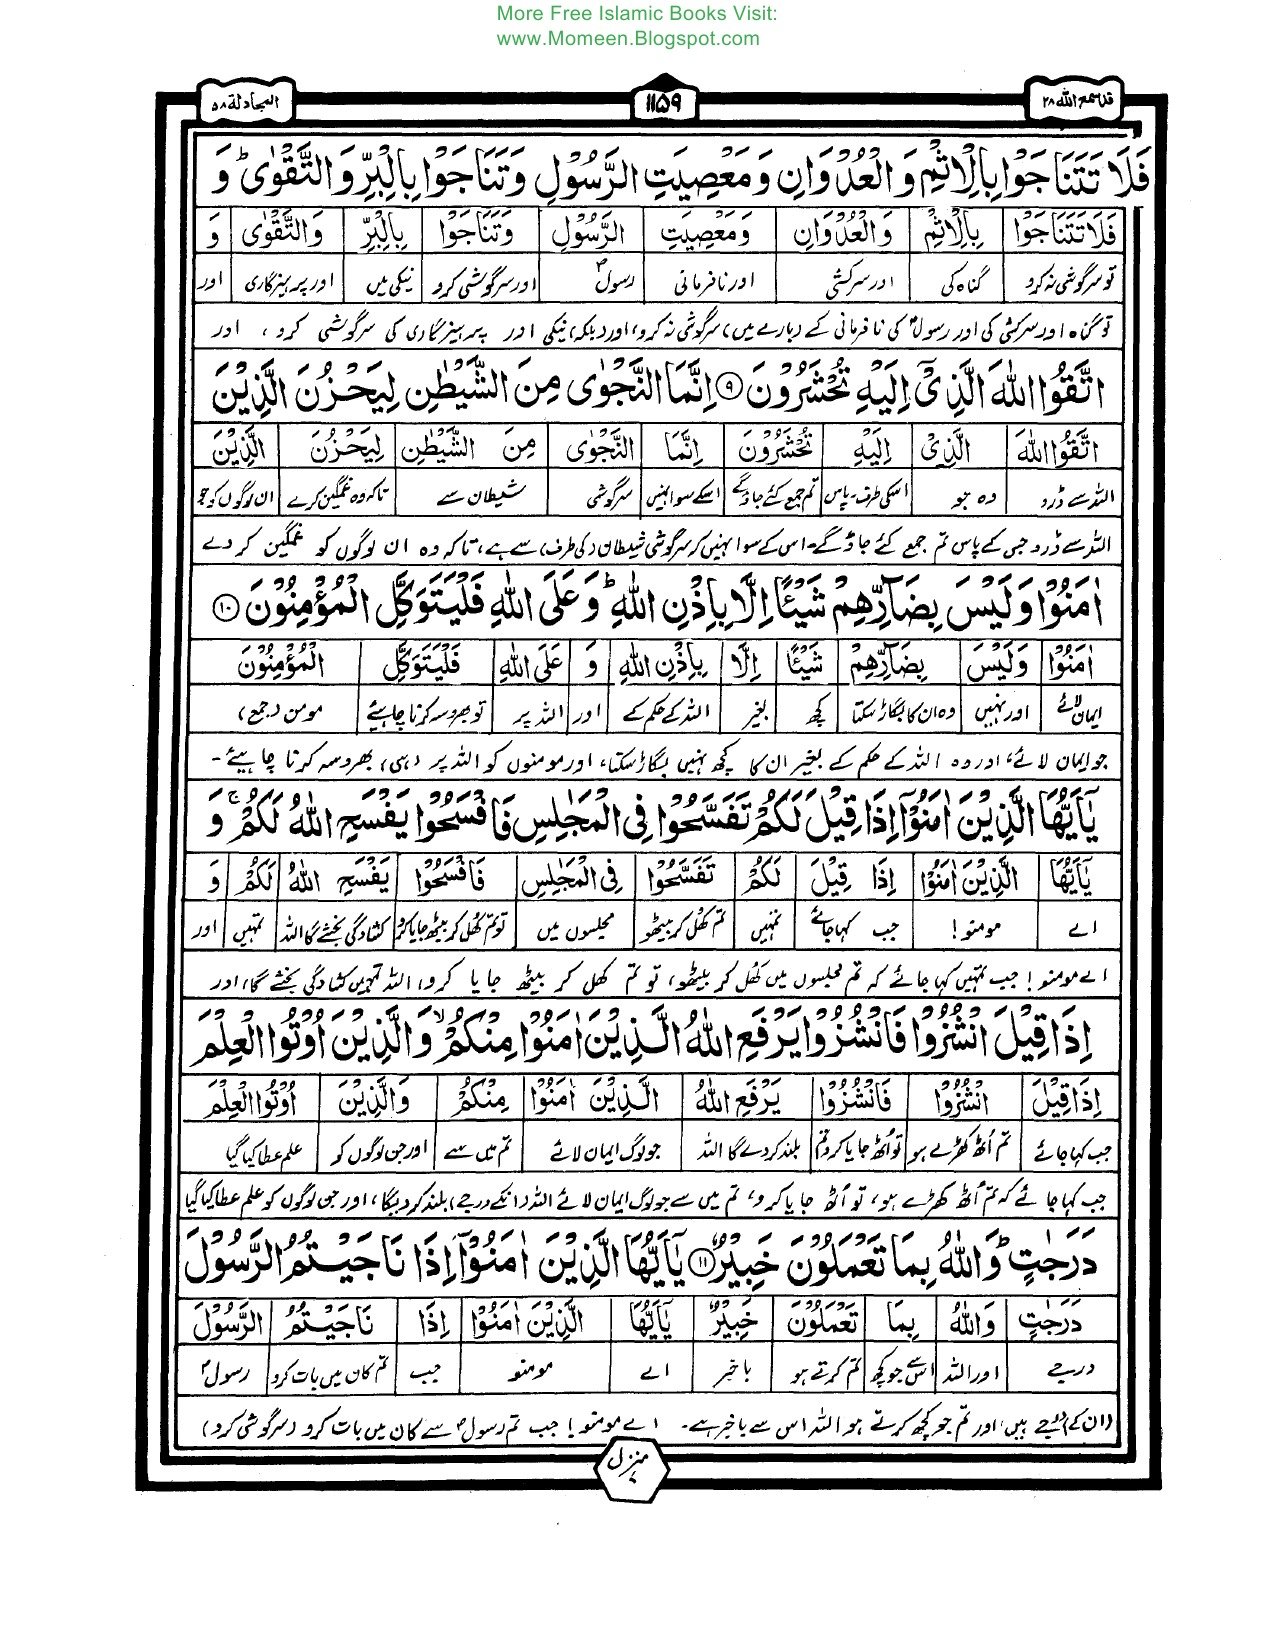 More Free Islamic Books Visit:
www.Momeen.Blogspot.com
قد سمع الله ۲۸ ۱۱۵۹ المجادلة ۵۸
فَلَا تَتَنَاجَوْا بِالْاِثْمِ وَ الْعُدْوَانِ وَ مَعْصِيَتِ الرَّسُوْلِ وَتَنَاجَوْا بِالْبِرِّ وَالتَّقْوٰى ؕ وَ
فَلَا تَتَنَاجَوْا بِالْاِثْمِ وَالْعُدْوَانِ وَمَعْصِيَتِ الرَّسُوْلِ وَتَنَاجَوْا بِالْبِرِّ وَالتَّقْوٰى وَ
تو سرگوشی نہ کرو گناہ کی اور سرکشی اور نافرمانی رسولؐ اور سرگوشی کرو نیکی میں اور پرہیزگاری اور
تو گناہ اور سرکشی کی اور رسولؐ کی نافرمانی کے (بارے میں) سرگوشی نہ کرو، اور (بلکہ) نیکی اور پرہیزگاری کی سرگوشی کرو، اور
اتَّقُوا اللّٰهَ الَّذِىْٓ اِلَيْهِ تُحْشَرُوْنَ ۹ اِنَّمَا النَّجْوٰى مِنَ الشَّيْطٰنِ لِيَحْزُنَ الَّذِيْنَ
اتَّقُوا اللّٰهَ الَّذِىْٓ اِلَيْهِ تُحْشَرُوْنَ اِنَّمَا النَّجْوٰى مِنَ الشَّيْطٰنِ لِيَحْزُنَ الَّذِيْنَ
اللہ سے ڈرو وہ جو اسکی طرف۔پاس تم جمع کئے جاؤگے اسکے سوا نہیں سرگوشی شیطان سے تاکہ وہ غمگین کرے ان لوگوں کو جو
اللہ سے ڈرو جس کے پاس تم جمع کئے جاؤگے۔ اس کے سوا نہیں کہ سرگوشی شیطان (کی طرف) سے ہے، تاکہ وہ ان لوگوں کو غمگین کر دے
اٰمَنُوْا وَلَيْسَ بِضَآرِّهِمْ شَيْئًا اِلَّا بِاِذْنِ اللّٰهِ ؕ وَعَلَى اللّٰهِ فَلْيَتَوَكَّلِ الْمُؤْمِنُوْنَ ۱۰
اٰمَنُوْا وَلَيْسَ بِضَآرِّهِمْ شَيْئًا اِلَّا بِاِذْنِ اللّٰهِ وَ عَلَى اللّٰهِ فَلْيَتَوَكَّلِ الْمُؤْمِنُوْنَ
ایمان لائے اور نہیں وہ ان کا بگاڑ سکتا کچھ بغیر اللہ کے حکم کے اور اللہ پر تو بھروسہ کرنا چاہیئے مومن (جمع)
جو ایمان لائے، اور وہ اللہ کے حکم کے بغیر ان کا کچھ نہیں بگاڑ سکتا، اور مومنوں کو اللہ پر (ہی) بھروسہ کرنا چاہیئے۔
يٰٓاَيُّهَا الَّذِيْنَ اٰمَنُوْٓا اِذَا قِيْلَ لَكُمْ تَفَسَّحُوْا فِى الْمَجٰلِسِ فَافْسَحُوْا يَفْسَحِ اللّٰهُ لَكُمْ ۚ وَ
يٰٓاَيُّهَا الَّذِيْنَ اٰمَنُوْٓا اِذَا قِيْلَ لَكُمْ تَفَسَّحُوْا فِى الْمَجٰلِسِ فَافْسَحُوْا يَفْسَحِ اللّٰهُ لَكُمْ وَ
اے مومنو! جب کہا جائے تمہیں تم کھل کر بیٹھو مجلسوں میں تو تم کھل کر بیٹھ جایا کرو کشادگی بخشے گا اللہ تمہیں اور
اے مومنو! جب تمہیں کہا جائے کہ تم مجلسوں میں کھل کر بیٹھو، تو تم کھل کر بیٹھ جایا کرو، اللہ تمہیں کشادگی بخشے گا، اور
اِذَا قِيْلَ انْشُزُوْا فَانْشُزُوْا يَرْفَعِ اللّٰهُ الَّذِيْنَ اٰمَنُوْا مِنْكُمْ ۙ وَالَّذِيْنَ اُوْتُوا الْعِلْمَ
اِذَا قِيْلَ انْشُزُوْا فَانْشُزُوْا يَرْفَعِ اللّٰهُ الَّذِيْنَ اٰمَنُوْا مِنْكُمْ وَالَّذِيْنَ اُوْتُوا الْعِلْمَ
جب کہا جائے تم اٹھ کھڑے ہو تو اٹھ جایا کرو تم بلند کر دے گا اللہ جو لوگ ایمان لائے تم میں سے اور جن لوگوں کو علم عطا کیا گیا
جب کہا جائے کہ تم اٹھ کھڑے ہو، تو اٹھ جایا کرو، تم میں سے جو لوگ ایمان لائے اللہ (انکے درجے) بلند کر دیگا، اور جن لوگوں کو علم عطا کیا گیا
دَرَجٰتٍ ؕ وَاللّٰهُ بِمَا تَعْمَلُوْنَ خَبِيْرٌ ۱۱ يٰٓاَيُّهَا الَّذِيْنَ اٰمَنُوْٓا اِذَا نَاجَيْتُمُ الرَّسُوْلَ
دَرَجٰتٍ وَاللّٰهُ بِمَا تَعْمَلُوْنَ خَبِيْرٌ يٰٓاَيُّهَا الَّذِيْنَ اٰمَنُوْٓا اِذَا نَاجَيْتُمُ الرَّسُوْلَ
درجے اور اللہ اسے جو کچھ تم کرتے ہو باخبر اے مومنو جب تم کان میں بات کرو رسولؐ
(ان کے) درجے ہیں، اور تم جو کچھ کرتے ہو اللہ اس سے باخبر ہے۔ اے مومنو! جب تم رسولؐ سے کان میں بات کرو (سرگوشی کرو)
منزل ۷